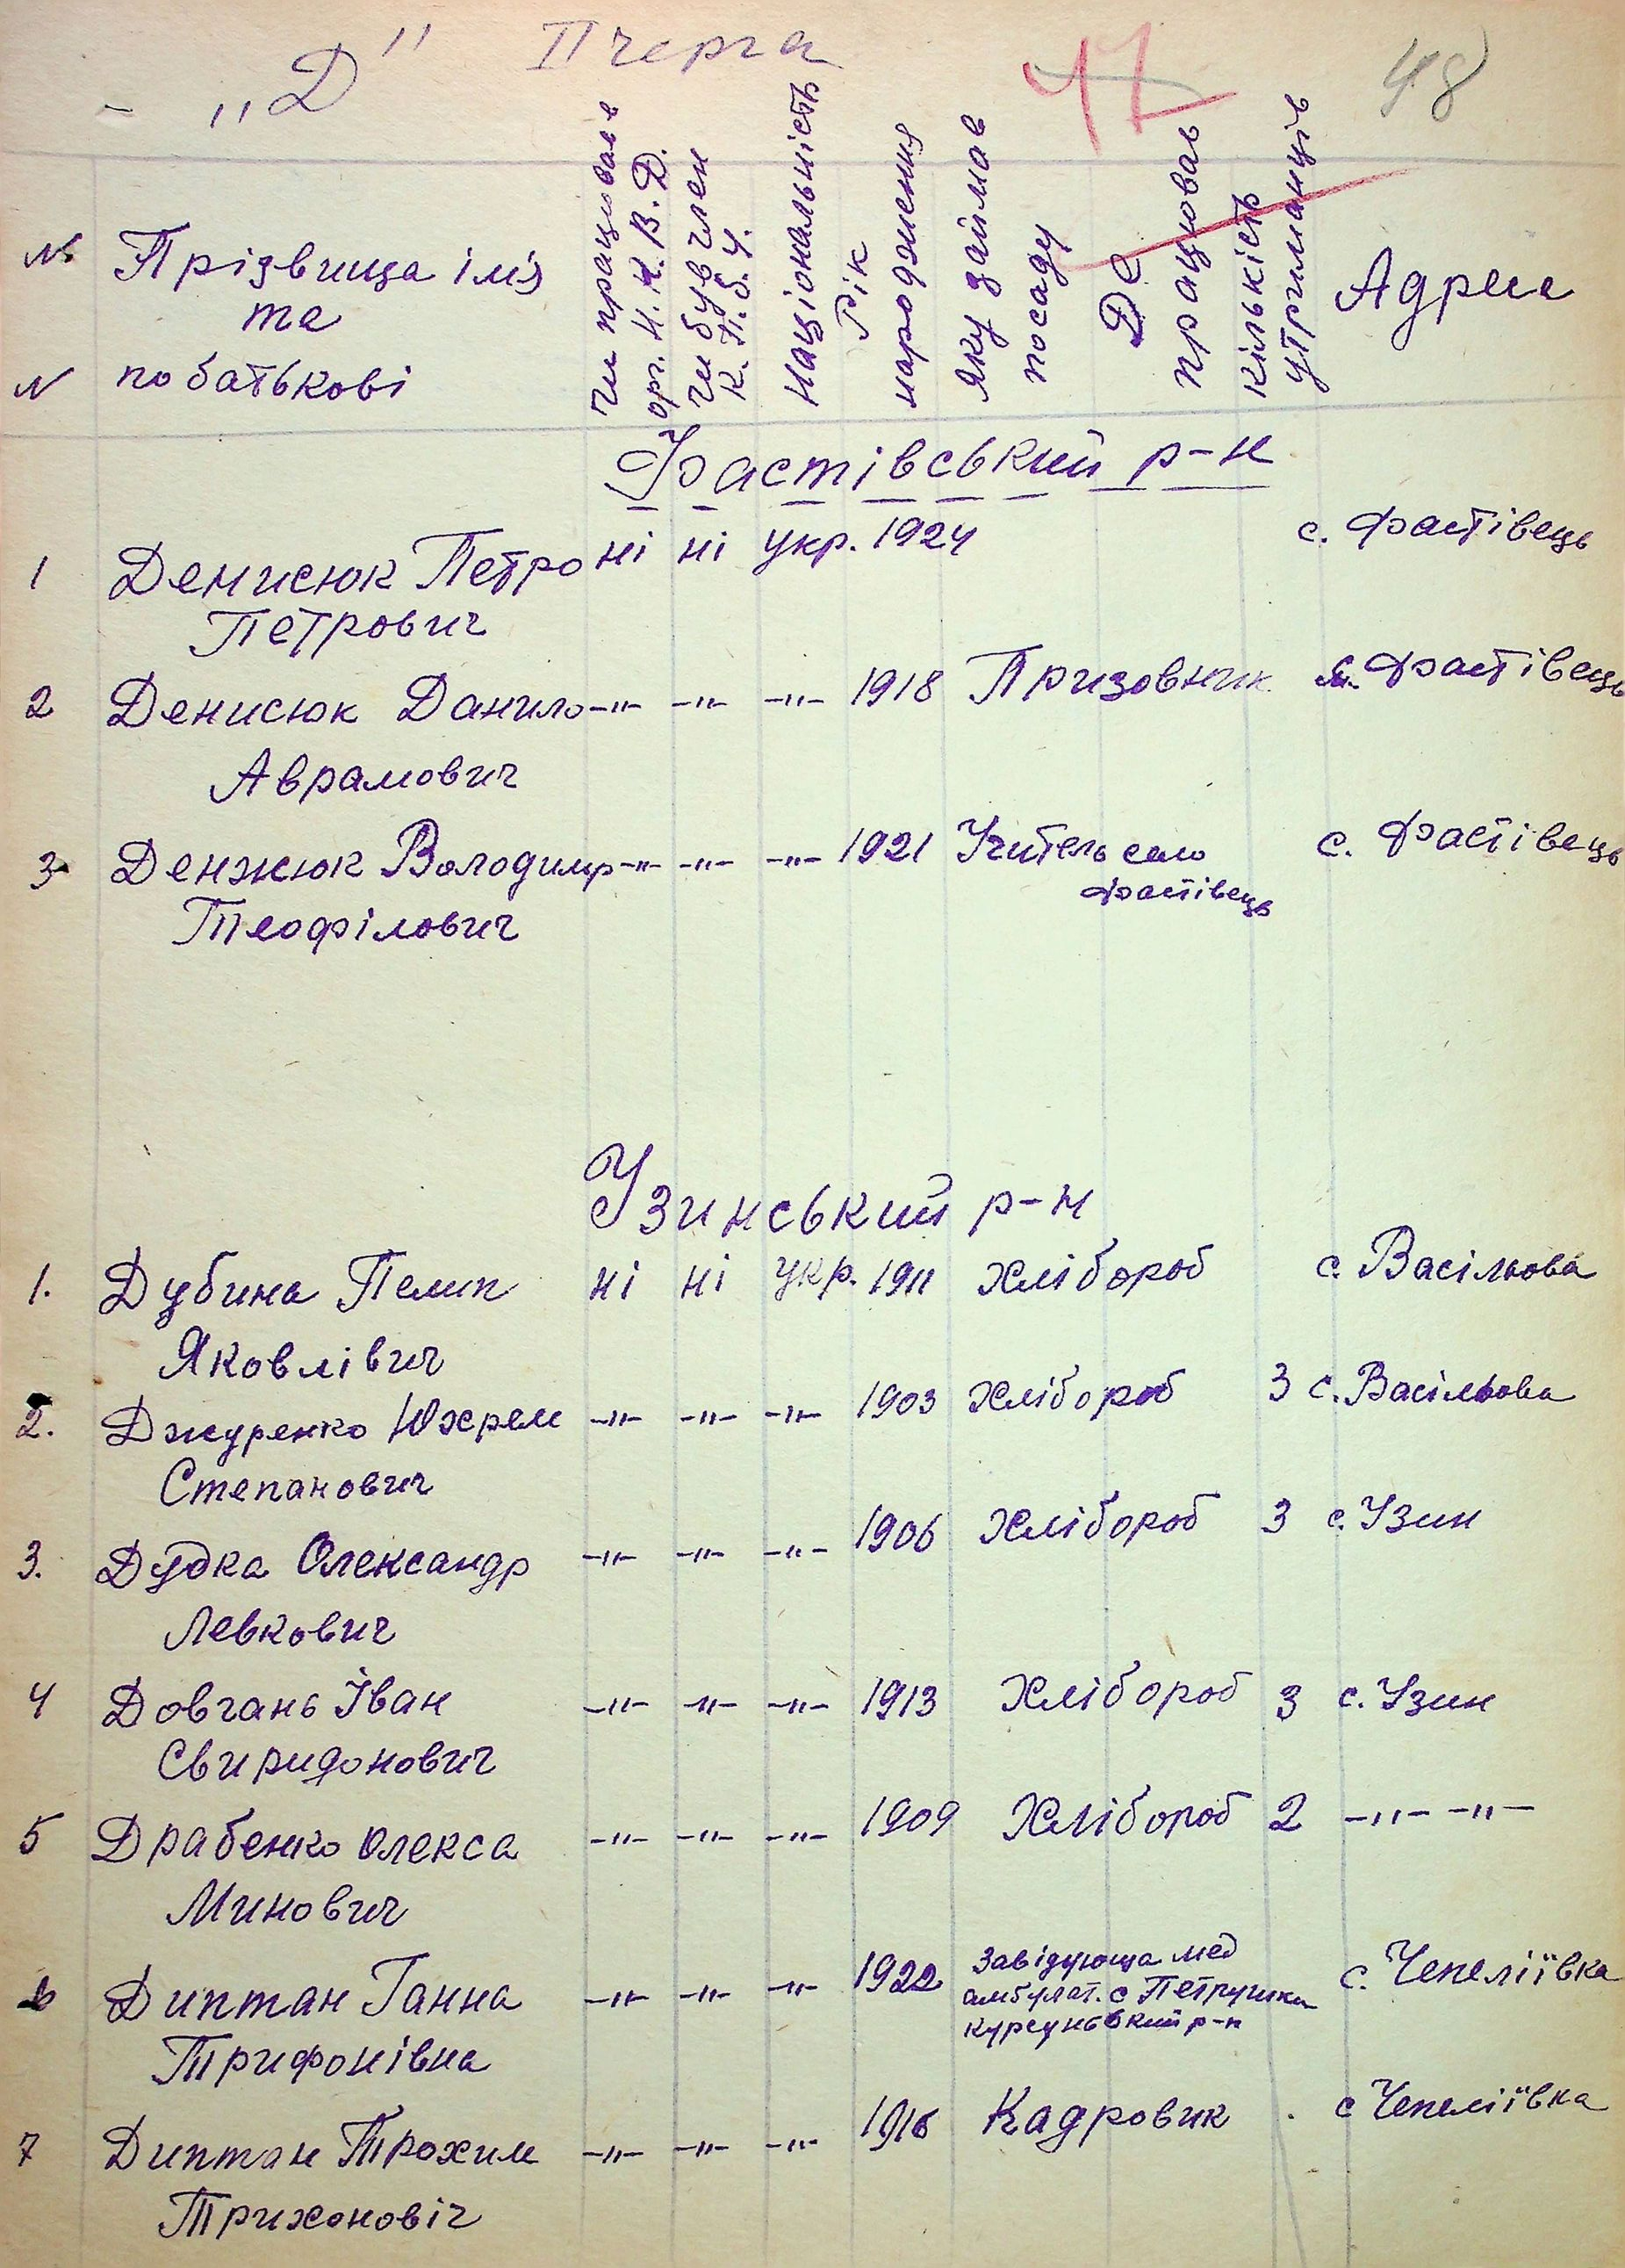 „Д" ІІ черга 47 48
№№ Прізвища ім'я та побатькові
чи працював орг. Н.К.В.Д.
чи був член К.П.б.У.
Національність
Рік народження
яку займав посаду
Де працював
кількість утриманців
Адреса
Фастівський р-н
1 Денисюк Петро ні ні укр. 1924 с. Фастівець
Петрович
2 Денисюк Данило -"- -"- -"- 1918 Призовник с. Фастівець
Аврамович
3 Денжюк Володимр -"- -"- -"- 1921 Учитель село с. Фастівець
Фастівець
Теофілович
Узинський р-н
1. Дубина Пелип ні ні укр. 1911 Хлібороб с. Васільова
Яковлівич
2. Джуренко Юхрем -"- -"- -"- 1903 Хлібороб 3 с. Васільова
Степанович
3. Дудка Олександр -"- -"- -"- 1906 Хлібороб 3 с. Узин
Левкович
4 Довгань Іван -"- -"- -"- 1913 Хлібороб 3 с. Узин
Свиридонович
5 Драбенко Олекса -"- -"- -"- 1909 Хлібороб 2 -"- -"-
Минович
6 Диптан Ганна -"- -"- -"- 1922 Завідующа мед с. Чепеліївка
амбулат. с Петрушки
курсунський р-н
Трифонівна
7 Диптан Трохим -"- -"- -"- 1916 Кадровик с Чепеліївка
Трихоновіч